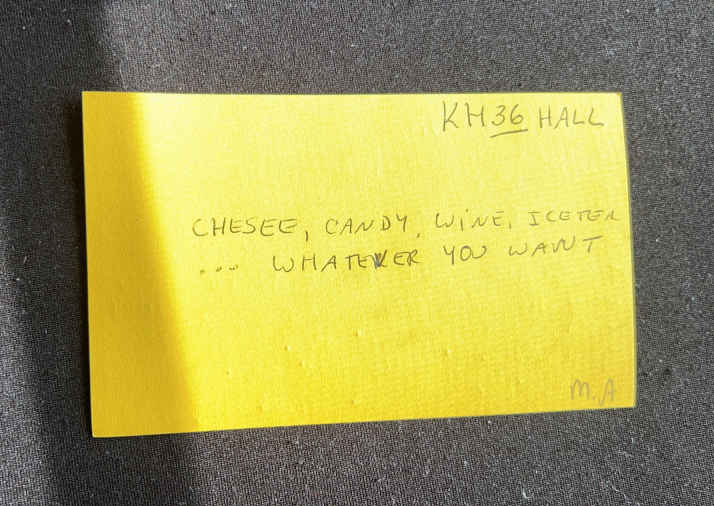 KM36 HALL
CHESEE, CANDY, WINE, ICETER
... WHATEVER YOU WANT
M.A